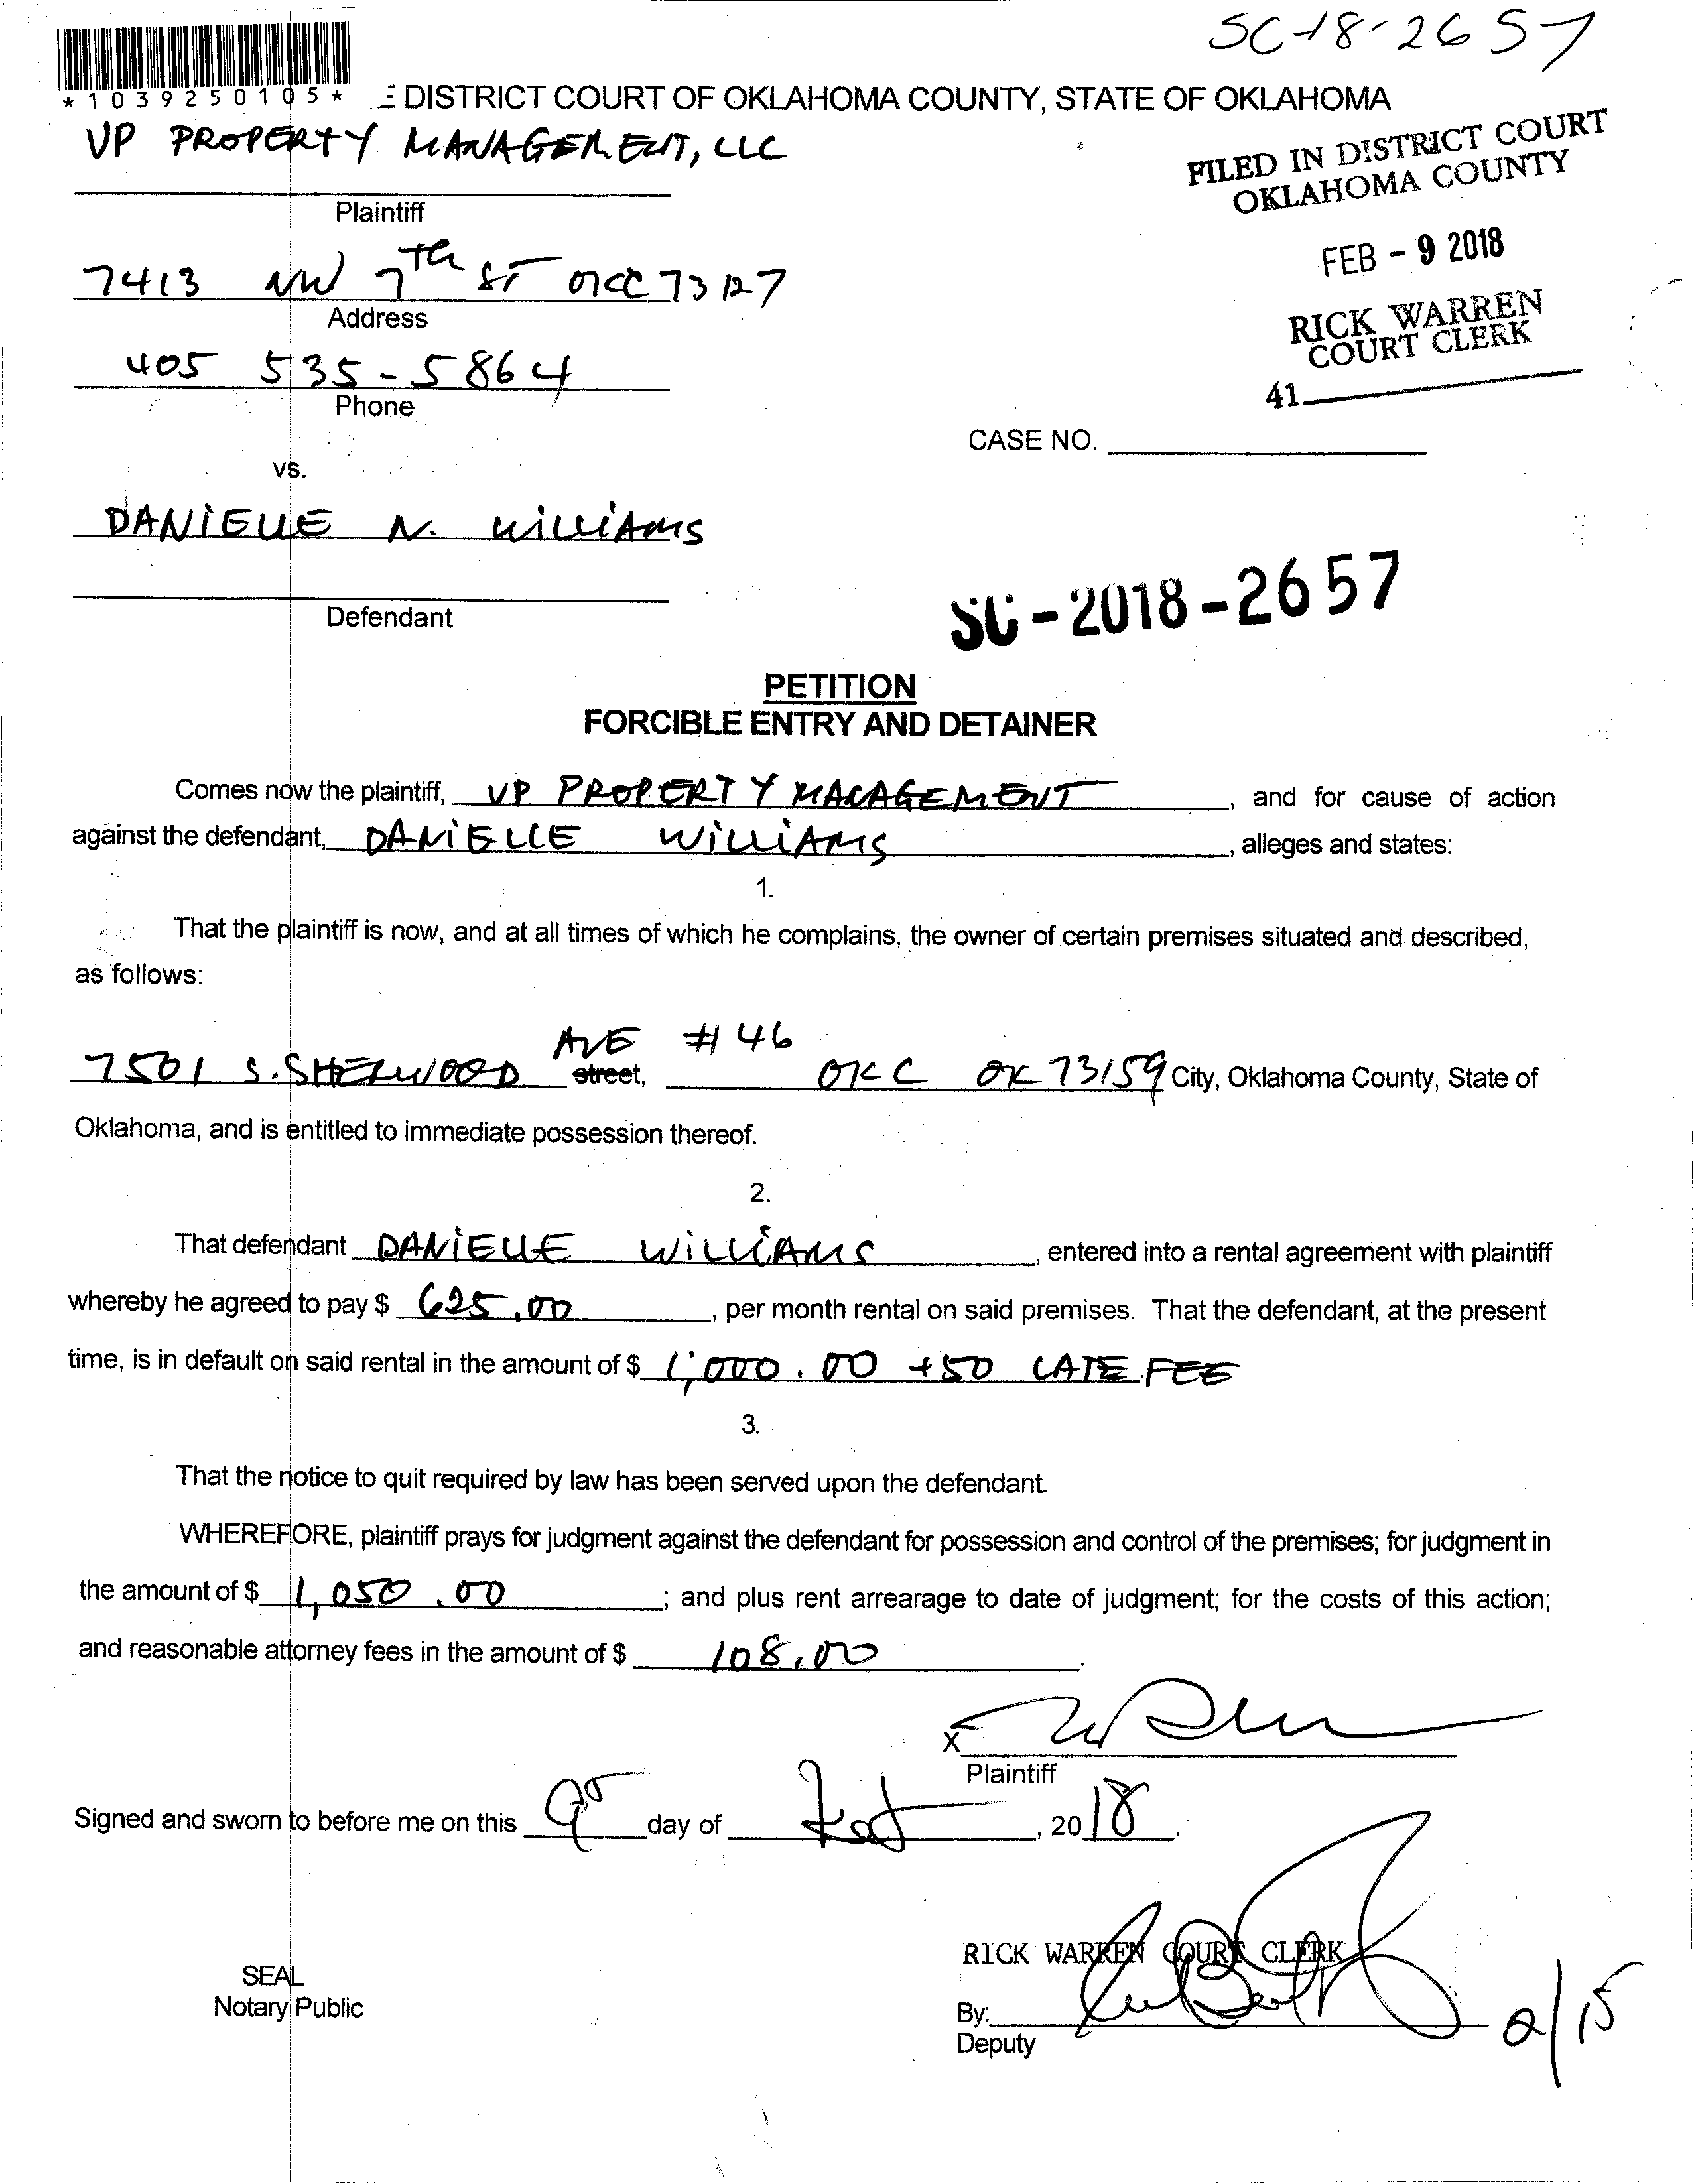 SC-18-2657
*1039250105*
E DISTRICT COURT OF OKLAHOMA COUNTY, STATE OF OKLAHOMA
VP PROPERTY MANAGEMENT, LLC
FILED IN DISTRICT COURT
OKLAHOMA COUNTY
Plaintiff
FEB - 9 2018
7413 NW 7th ST OKC 73127
Address
RICK WARREN
COURT CLERK
405 535-5864
Phone
41
CASE NO.
vs.
DANIELLE N. WILLIAMS
Defendant
SC-2018-2657
PETITION
FORCIBLE ENTRY AND DETAINER
Comes now the plaintiff, VP PROPERTY MANAGEMENT, and for cause of action
against the defendant, DANIELLE WILLIAMS, alleges and states:
1.
That the plaintiff is now, and at all times of which he complains, the owner of certain premises situated and described,
as follows:
AVE #46
7501 S. SHERWOOD street, OKC OK 73159 City, Oklahoma County, State of
Oklahoma, and is entitled to immediate possession thereof.
2.
That defendant DANIELLE WILLIAMS, entered into a rental agreement with plaintiff
whereby he agreed to pay $ 625.00, per month rental on said premises. That the defendant, at the present
time, is in default on said rental in the amount of $ 1,000.00 +50 LATE FEE
3.
That the notice to quit required by law has been served upon the defendant.
WHEREFORE, plaintiff prays for judgment against the defendant for possession and control of the premises; for judgment in
the amount of $ 1,050.00; and plus rent arrearage to date of judgment; for the costs of this action;
and reasonable attorney fees in the amount of $ 108.00.
X
Plaintiff
Signed and sworn to before me on this 9 day of Feb, 2018.
RICK WARREN COURT CLERK
SEAL
Notary Public
By:
Deputy
2/15